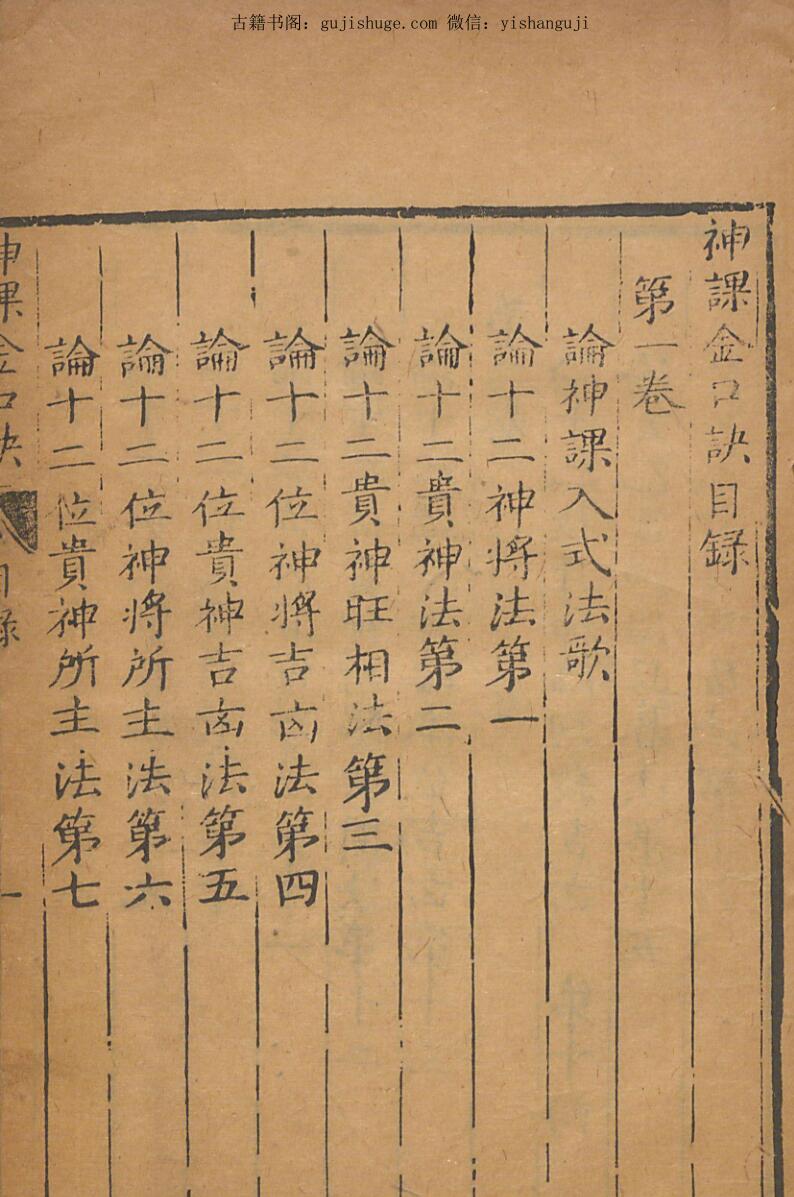 古籍书阁：gujishuge.com 微信：yishanguji
神課金口訣目録
第一卷
論神課入式法歌
論十二神將法第一
論十二貴神法第二
論十二貴神旺相法第三
論十二位神將吉凶法第四
論十二位貴神吉凶法第五
論十二位神將所主法第六
論十二位貴神所主法第七
神課金口訣
目録
一